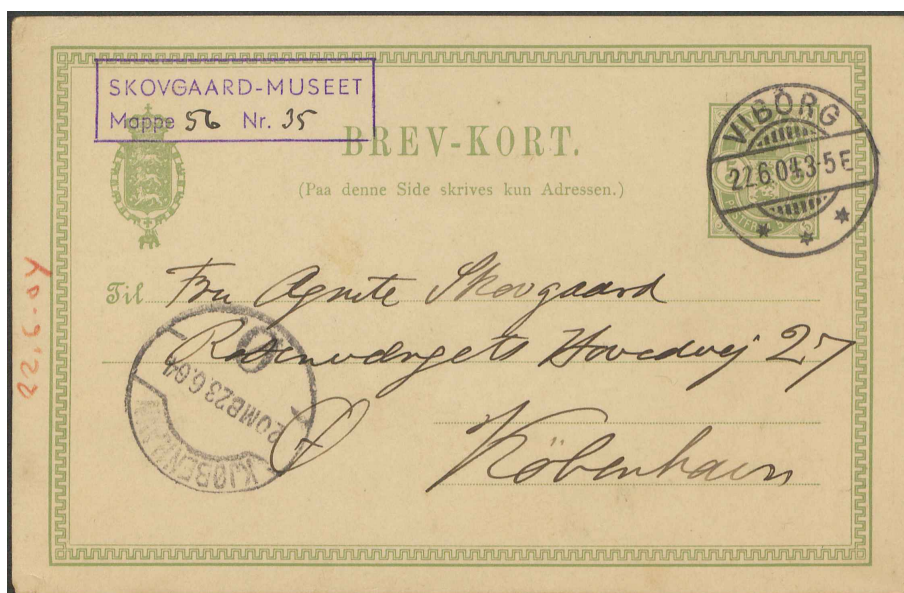 SKOVGAARD-MUSEET
Mappe 56 Nr. 35
BREV-KORT.
(Paa denne Side skrives kun Adressen.)
VIBORG
22.6.04.3-5 E
Til Fru Agnete Skovgaard
Rosenvængets Hovedvej 27
Ø
København
KJØBENHAVN
23.6.04
22.6-04